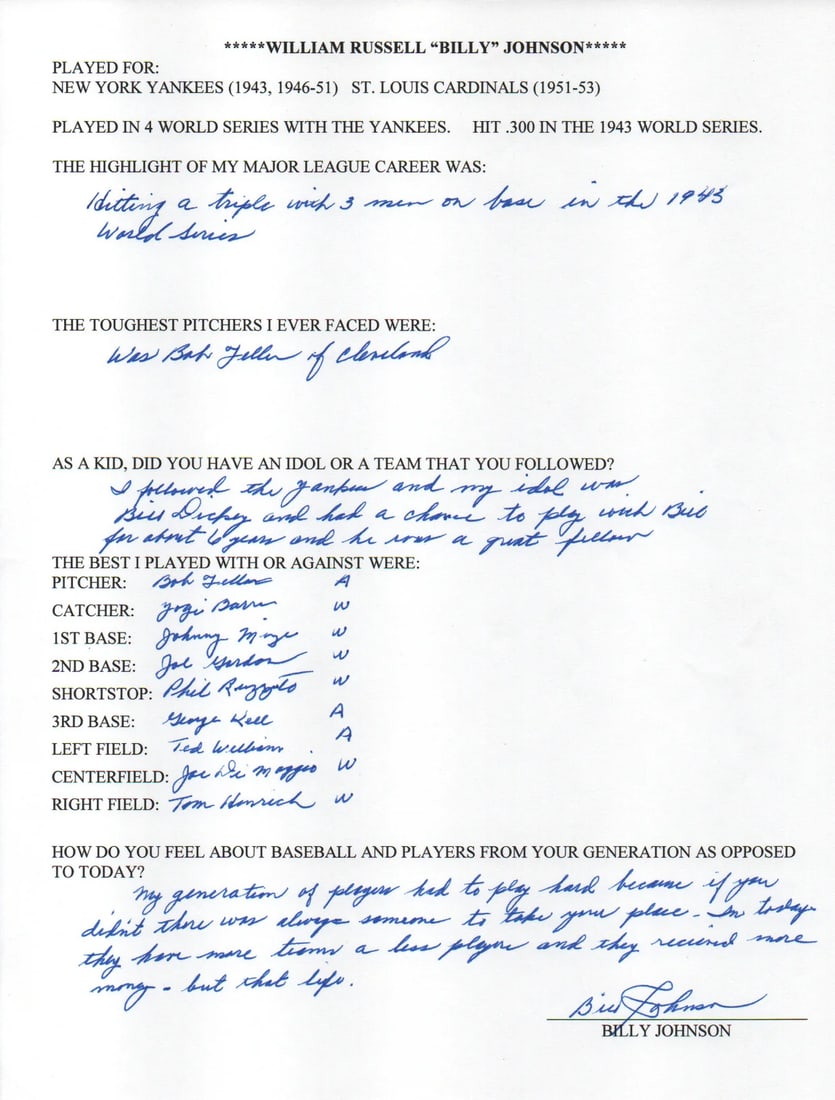 *****WILLIAM RUSSELL “BILLY” JOHNSON*****
PLAYED FOR:
NEW YORK YANKEES (1943, 1946-51) ST. LOUIS CARDINALS (1951-53)
PLAYED IN 4 WORLD SERIES WITH THE YANKEES. HIT .300 IN THE 1943 WORLD SERIES.
THE HIGHLIGHT OF MY MAJOR LEAGUE CAREER WAS:
Hitting a triple with 3 men on base in the 1943
World Series
THE TOUGHEST PITCHERS I EVER FACED WERE:
Was Bob Feller of Cleveland
AS A KID, DID YOU HAVE AN IDOL OR A TEAM THAT YOU FOLLOWED?
I followed the Yankees and my idol was
Bill Dickey and had a chance to play with Bill
for about 6 years and he was a great fellow
THE BEST I PLAYED WITH OR AGAINST WERE:
PITCHER: Bob Feller A
CATCHER: Yogi Barra W
1ST BASE: Johnny Mize W
2ND BASE: Joe Gordon W
SHORTSTOP: Phil Ruzzuto W
3RD BASE: George Kell A
LEFT FIELD: Ted William . A
CENTERFIELD: Joe Di Maggio W
RIGHT FIELD: Tom Henrich W
HOW DO YOU FEEL ABOUT BASEBALL AND PLAYERS FROM YOUR GENERATION AS OPPOSED
TO TODAY?
My generation of players had to play hard because if you
didn't there was always someone to take your place - In today
they have more teams a less players and they recieved more
money - but that life.
Bill Johnson
BILLY JOHNSON